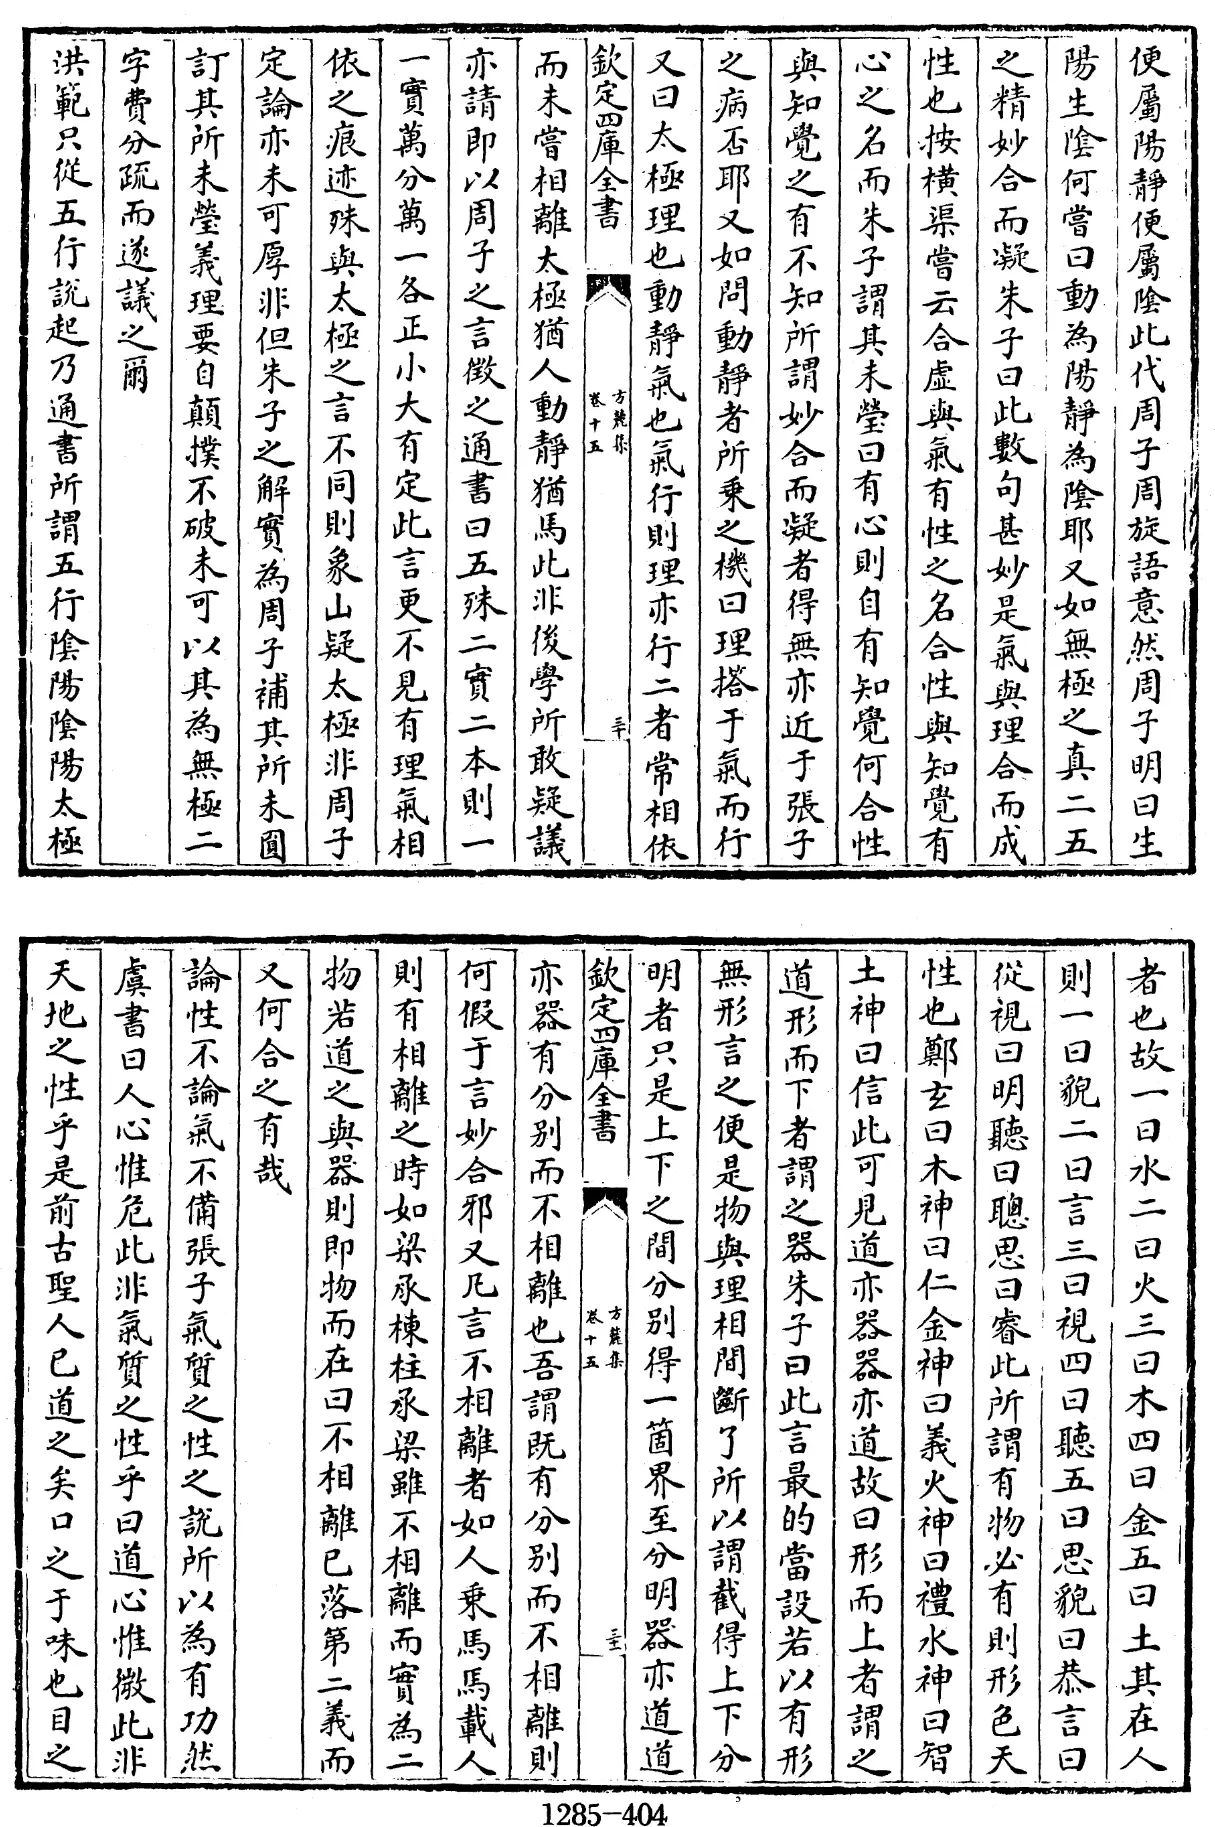 便屬陽靜便屬陰此代周子周旋語意然周子明曰生
陽生陰何嘗曰動為陽靜為陰耶又如無極之真二五
之精妙合而凝朱子曰此數句甚妙是氣與理合而成
性也按橫渠嘗云合虛與氣有性之名合性與知覺有
心之名而朱子謂其未瑩曰有心則自有知覺何合性
與知覺之有不知所謂妙合而凝者得無亦近于張子
之病否耶又如問動靜者所乘之機曰理搭于氣而行
又曰太極理也動靜氣也氣行則理亦行二者常相依
欽定四庫全書
方麓集
卷十五
三十
而未嘗相離太極猶人動靜猶馬此非後學所敢疑議
亦請即以周子之言徵之通書曰五殊二實二本則一
一實萬分萬一各正小大有定此言更不見有理氣相
依之痕迹殊與太極之言不同則象山疑太極非周子
定論亦未可厚非但朱子之解實為周子補其所未圓
訂其所未瑩義理要自顛撲不破未可以其為無極二
字費分疏而遂議之爾
洪範只從五行說起乃通書所謂五行陰陽陰陽太極
者也故一曰水二曰火三曰木四曰金五曰土其在人
則一曰貌二曰言三曰視四曰聽五曰思貌曰恭言曰
從視曰明聽曰聰思曰睿此所謂有物必有則形色天
性也鄭玄曰木神曰仁金神曰義火神曰禮水神曰智
土神曰信此可見道亦器器亦道故曰形而上者謂之
道形而下者謂之器朱子曰此言最的當設若以有形
無形言之便是物與理相間斷了所以謂截得上下分
明者只是上下之間分別得一箇界至分明器亦道道
欽定四庫全書
方麓集
卷十五
三十一
亦器有分別而不相離也吾謂既有分別而不相離則
何假于言妙合邪又凡言不相離者如人乘馬馬載人
則有相離之時如梁承棟柱承梁雖不相離而實為二
物若道之與器則即物而在曰不相離已落第二義而
又何合之有哉
論性不論氣不備張子氣質之性之說所以為有功然
虞書曰人心惟危此非氣質之性乎曰道心惟微此非
天地之性乎是前古聖人已道之矣口之于味也目之
1285-404